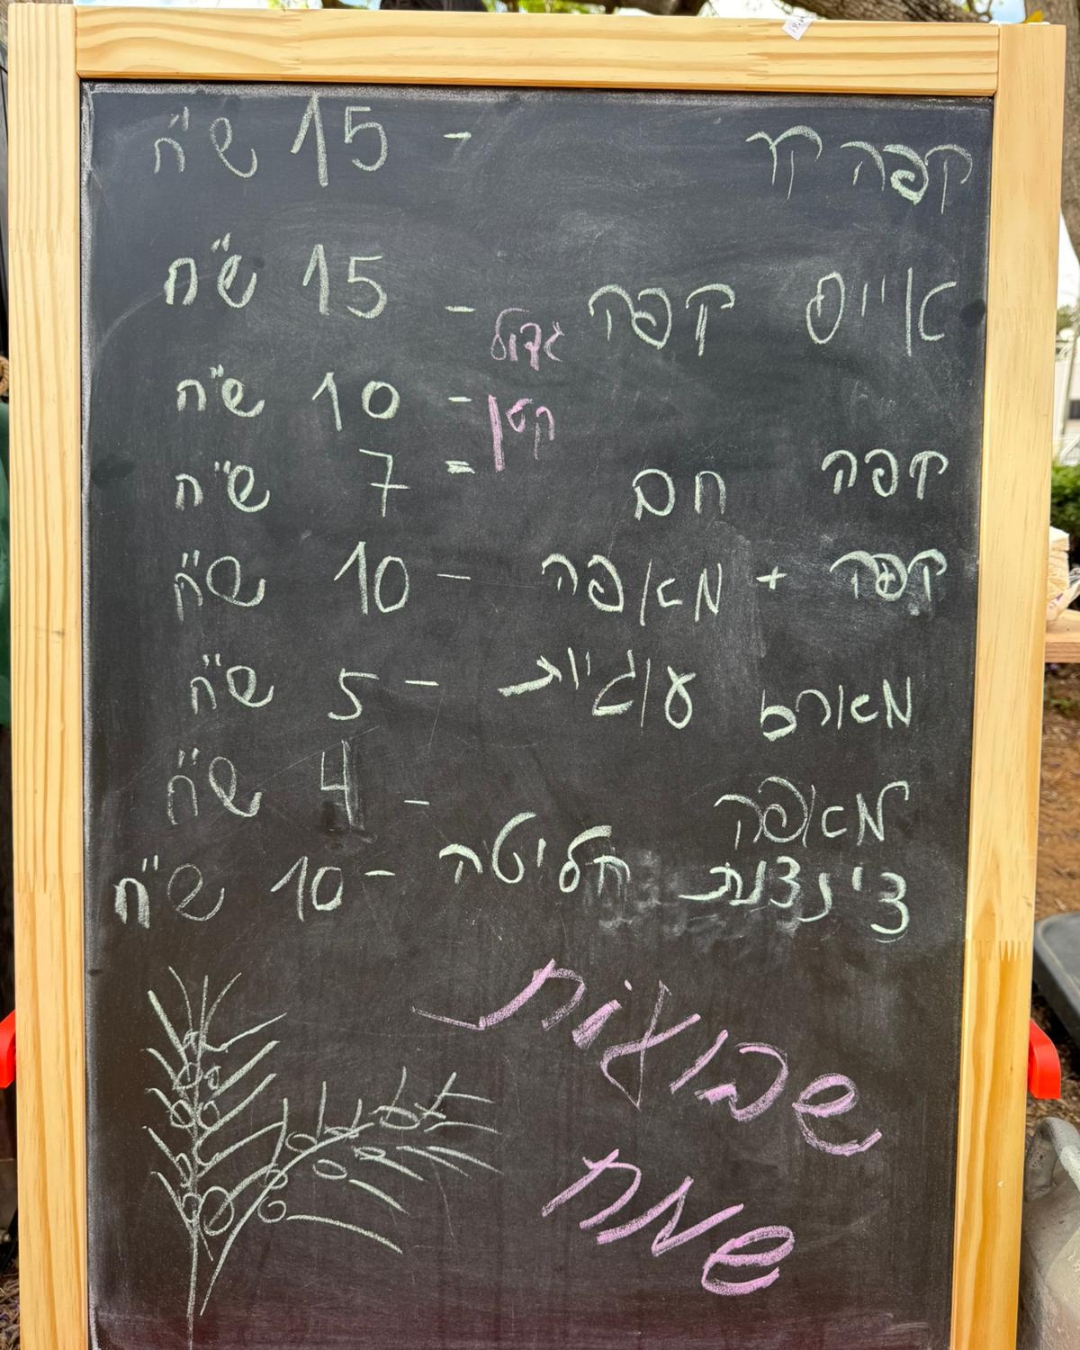 קפה קר - 15 ש"ח
אייס קפה גדול - 15 ש"ח
קטן - 10 ש"ח
קפה חם = 7 ש"ח
קפה + מאפה - 10 ש"ח
מארם עוגיות - 5 ש"ח
מאפה - 4 ש"ח
צינצנת חליטה - 10 ש"ח
שבועות
שמח